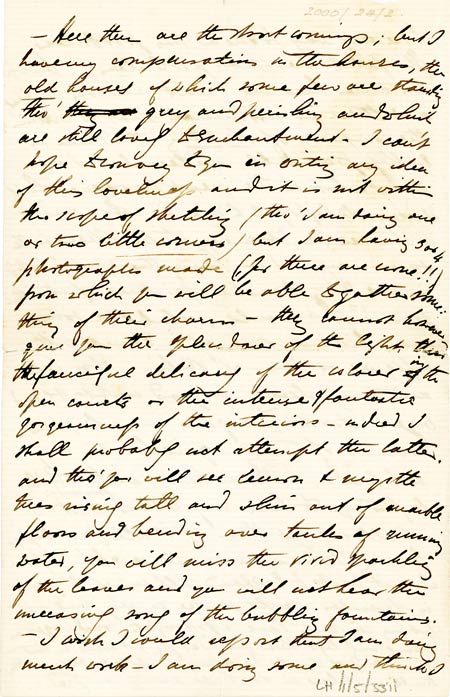 2000/24/2
– Here then are the short comings; but I
have my compensation in the houses, the
old houses of which some few are standing
tho' they are grey and perishing and which
are still lovely to enchantment – I can't
hope to convey to you in writing any idea
of this loveliness and it is not within
the scope of sketching (tho' I am doing one
or two little corners) but I am having 3 or 4
photographs made (for there are none!!)
from which you will be able to gather some:
thing of their charm – they cannot however
give you the splendour of the light &
the fanciful delicacy of the colour in the
open courts or the intense & fantastic
gorgeousness of the interiors – indeed I
shall probably not attempt the latter.
and tho' you will see lemon & myrtle
trees rising tall and slim out of marble
floors and bending over tanks of running
water, you will miss the vivid sparkling
of the leaves and you will not hear the
unceasing song of the bubbling fountains.
– I wish I could report that I am doing
much work – I am doing some and think I
LH/1/5/5311